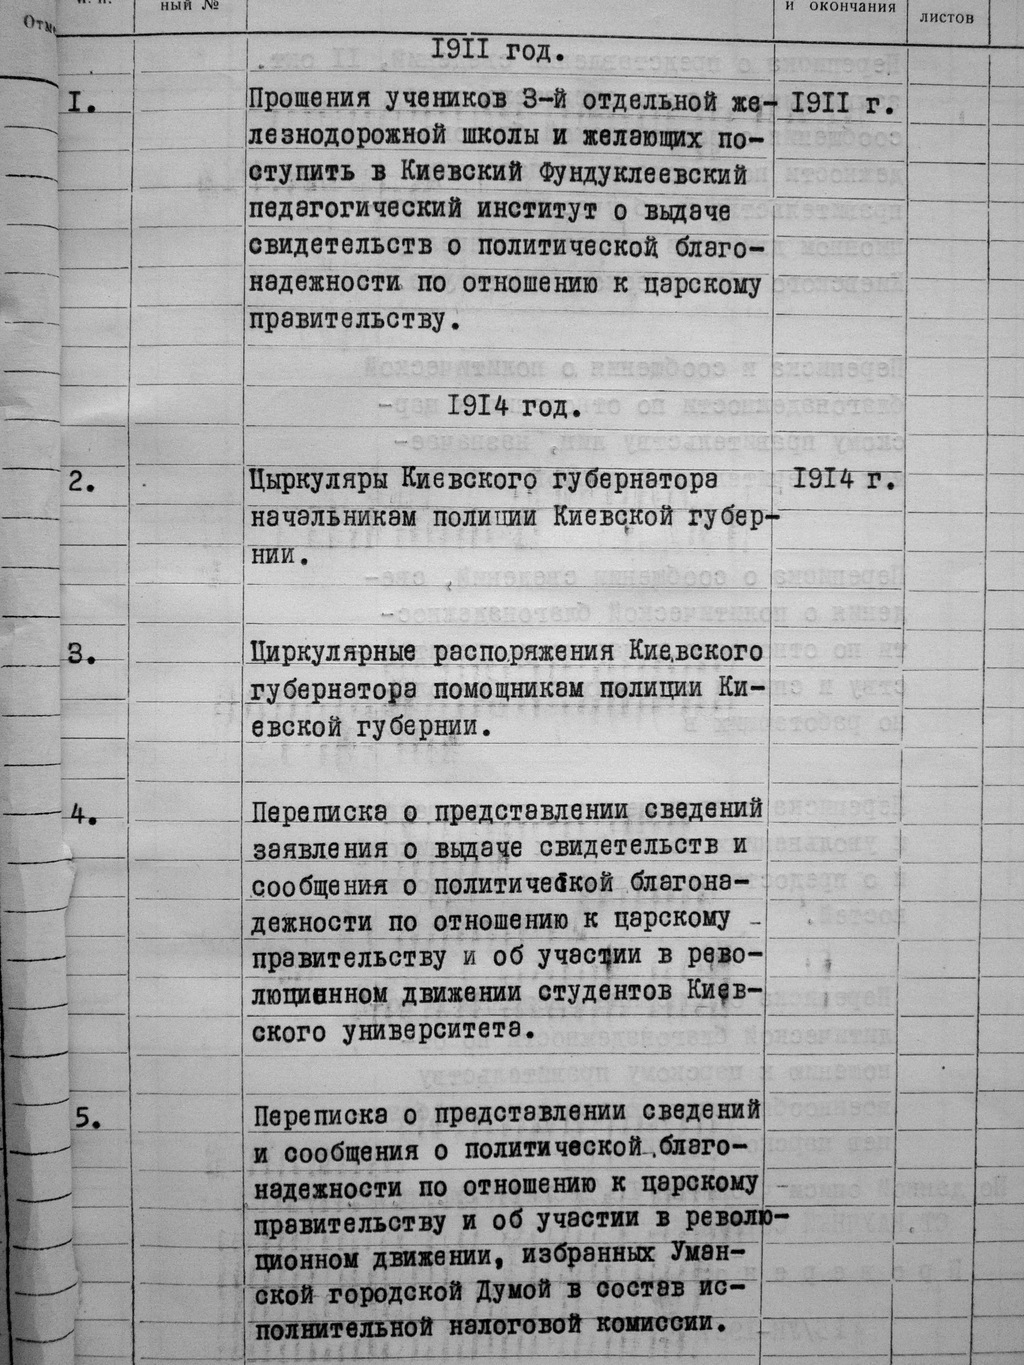 ный №
и окончания
листов
1911 год.
1. Прошения учеников 3-й отдельной же- 1911 г.
лезнодорожной школы и желающих по-
ступить в Киевский Фундуклеевский
педагогический институт о выдаче
свидетельств о политической благо-
надежности по отношению к царскому
правительству.
1914 год.
2. Цыркуляры Киевского губернатора 1914 г.
начальникам полиции Киевской губер-
нии.
3. Циркулярные распоряжения Киевского
губернатора помощникам полиции Ки-
евской губернии.
4. Переписка о представлении сведений
заявления о выдаче свидетельств и
сообщения о политической благона-
дежности по отношению к царскому
правительству и об участии в рево-
люционном движении студентов Киев-
ского университета.
5. Переписка о представлении сведений
и сообщения о политической благо-
надежности по отношению к царскому
правительству и об участии в револю-
ционном движении, избранных Уман-
ской городской Думой в состав ис-
полнительной налоговой комиссии.